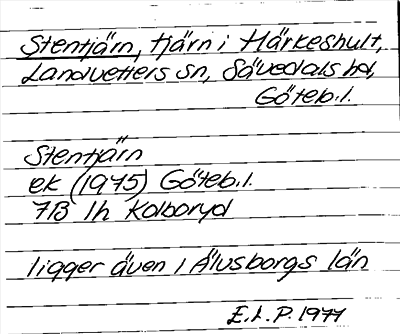 Stentjärn, tjärn i Härkeshult,
Landvetters sn, Sävedals hd,
Göteb.l.
Stentjärn
ek (1975) Göteb.l.
7B 1h Kolboryd
ligger även i Älvsborgs län
E.L.P. 1977